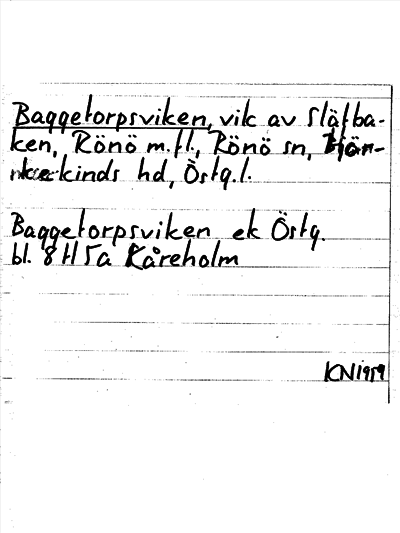 Baggetorpsviken, vik av Slätba-
ken, Rönö m.fl., Rönö sn, Björ-
kekinds hd, Östg.l.
Baggetorpsviken ek Östg.
bl. 8 H 5a Kåreholm
KN 1959